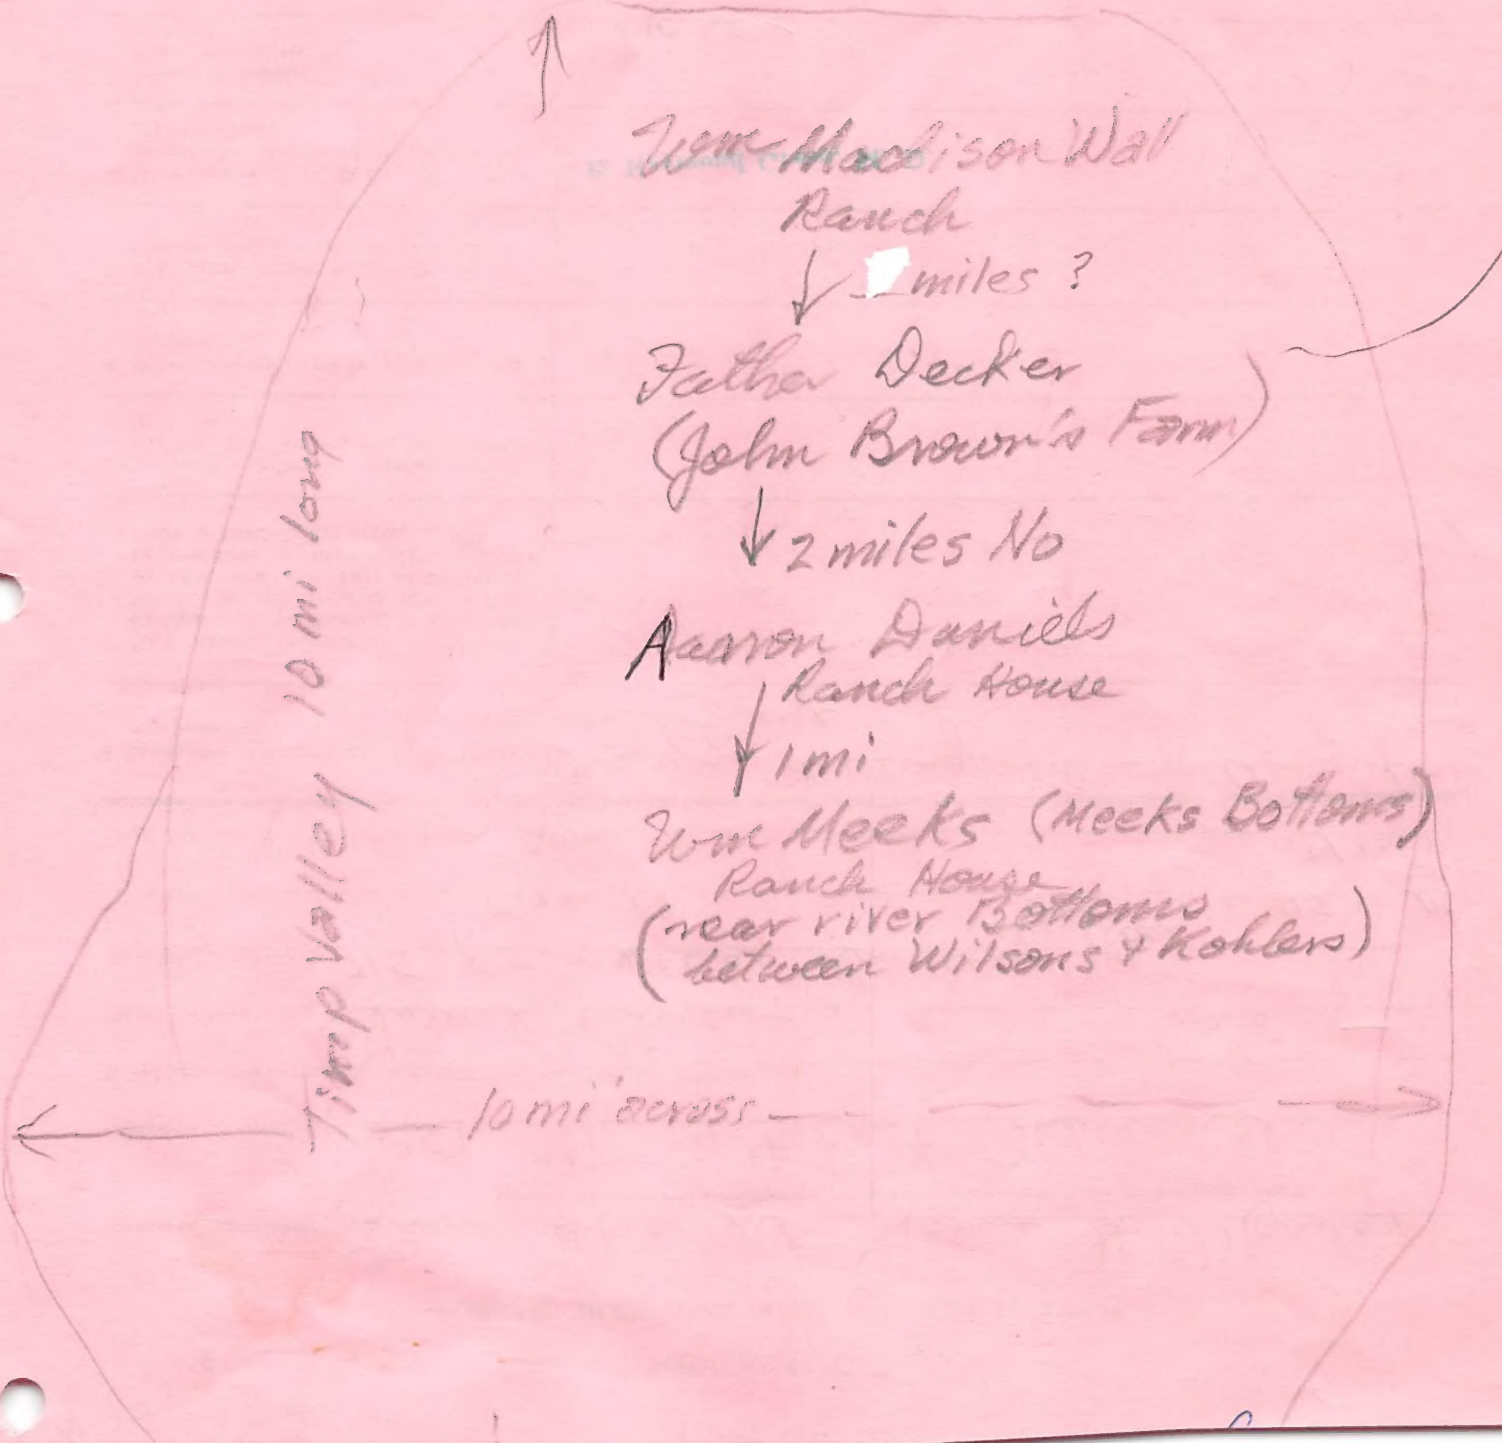 Wm Madison Wall
Ranch
miles ?
Father Decker
(John Brown's Farm)
2 miles No
Aaaron Daniels
Ranch House
1 mi
Wm Meeks (Meeks Bottoms)
Ranch House
(near river Bottoms
between Wilsons & Kohlers)
Timp Valley 10 mi long
10 mi across